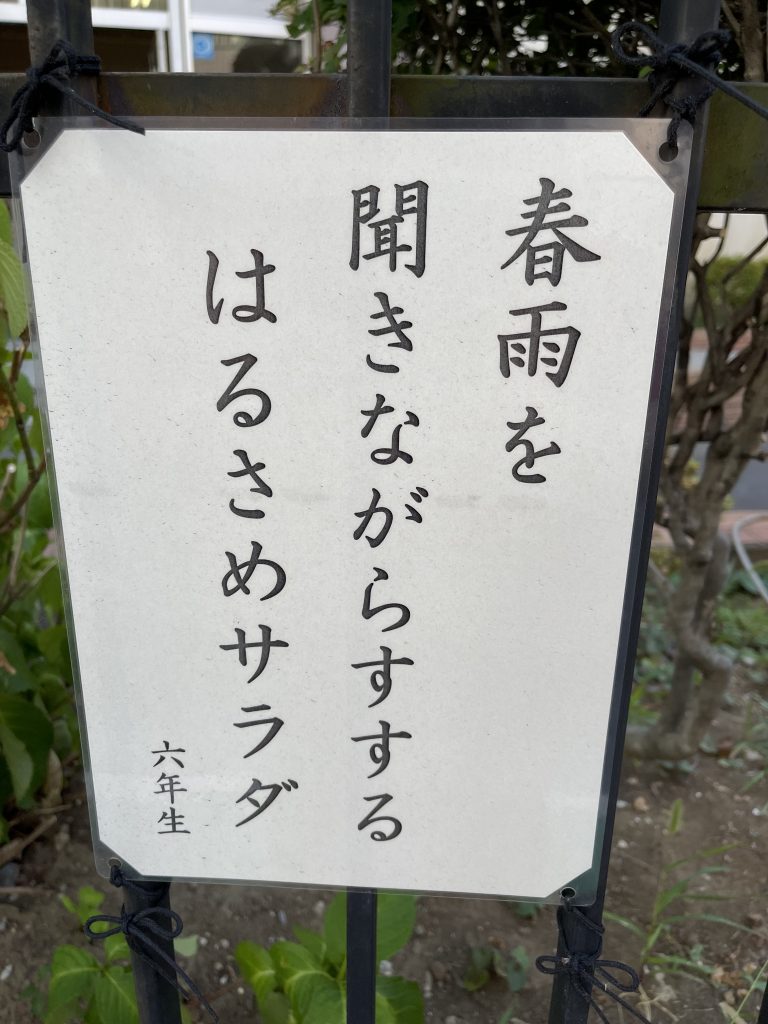 春雨を
聞きながらすする
はるさめサラダ
六年生